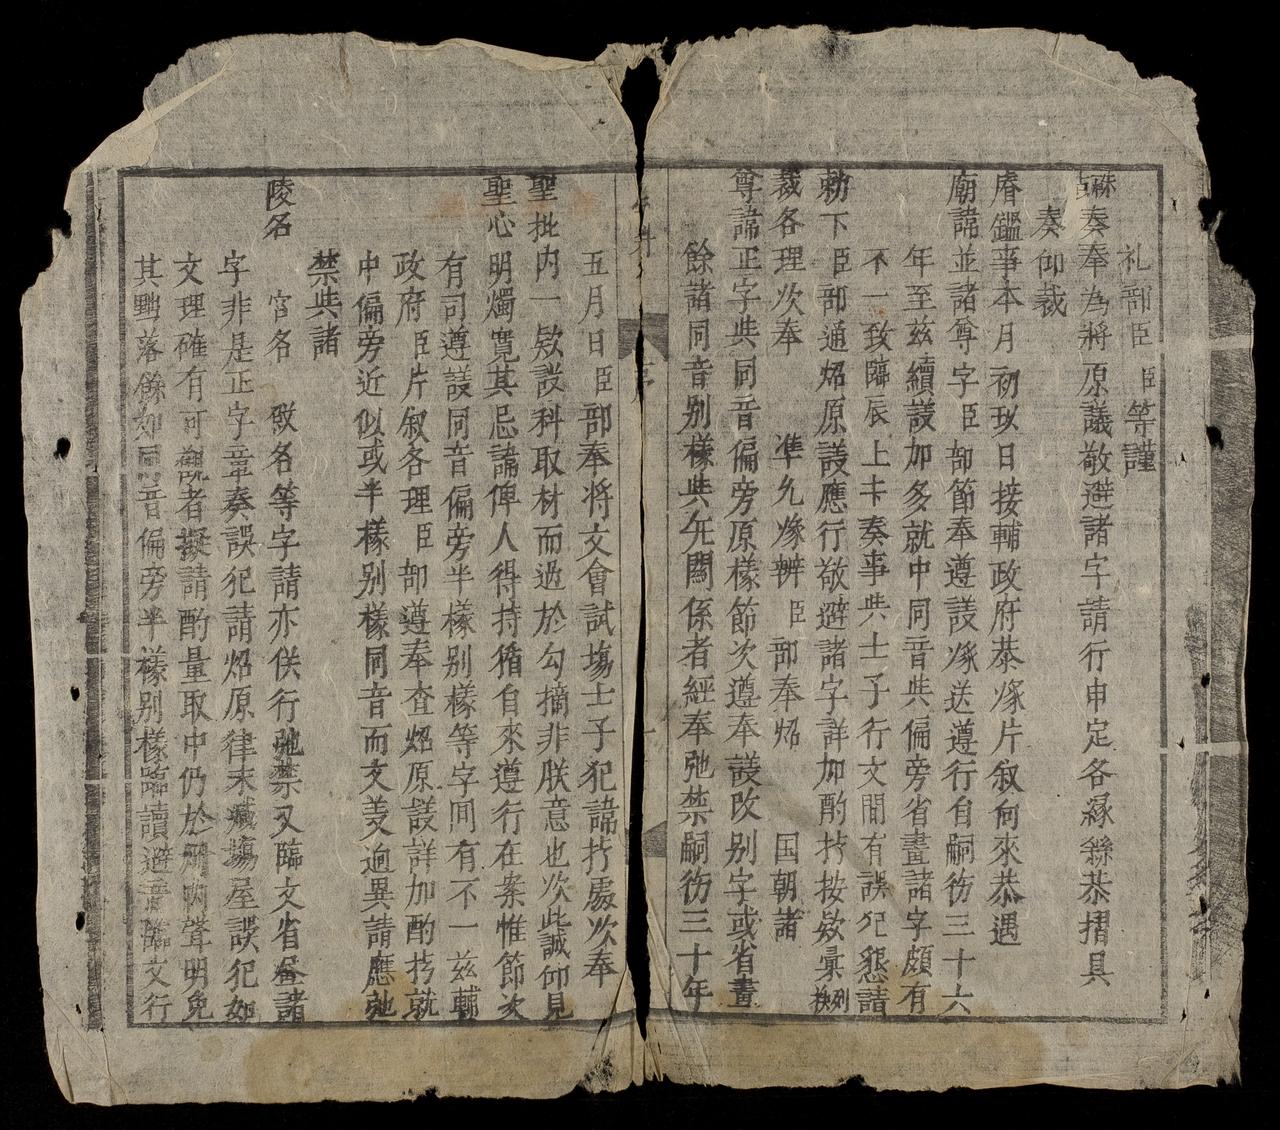 礼部臣臣等謹
奏奉為將原議敬避諸字請行申定各緣繇恭摺具
奏仰裁
睿鑑事本月初玖日接輔政府恭㑼片叙向來恭遇
廟諱並諸尊字臣部節奉遵議㑼送遵行自嗣德三十六
年至兹續議加多就中同音共偏旁省畫諸字頗有
不一致臨辰上卞奏事共士子行文間有誤犯懇請
勅下臣部通炤原議應行敬避諸字詳加酌拧按欵彙列
裁各理次奉 準允㑼辨臣部奉炤 国朝諸
尊諱正字共同音偏旁原樣節次遵奉議改別字或省畫
餘諸同音別樣共無關係者經奉弛禁嗣德三十年
五月日臣部奉将文會試塲士子犯諱拧處次奉
聖批内一欵設科取材而過於勾摘非朕意也次此誠仰見
聖心明燭寬其忌諱俾人得持循自來遵行在案惟節次
有司遵議同音偏旁半樣別樣等字間有不一兹輔
政府臣片叙各理臣部遵奉查炤原議詳加酌拧就
中偏旁近似或半樣別樣同音而文義迥異請應弛
禁共諸
陵名 宮名 殿名等字請亦俟行弛禁又臨文省畫諸
字非是正字章奏誤犯請炤原律末减塲屋誤犯如
文理確有可觀者擬請酌量取中仍於册内聲明免
其黜落餘如同音偏旁半樣別樣臨讀避音臨文行